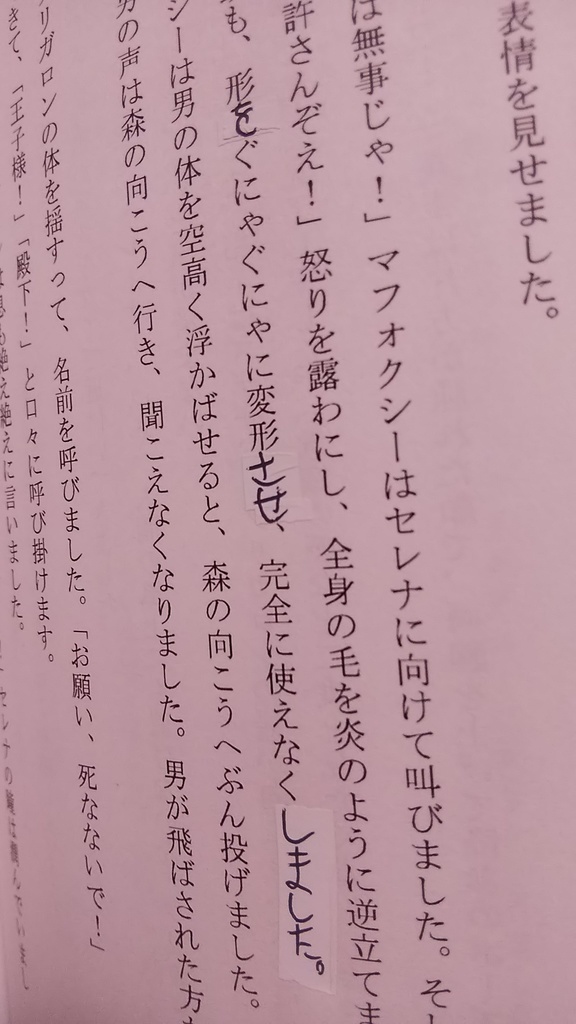 表情を見せました。
は無事じゃ！」マフォクシーはセレナに向けて叫びました。そ
許さんぞえ！」怒りを露わにし、全身の毛を炎のように逆立てま
も、形をぐにゃぐにゃに変形させ、完全に使えなくしました。
シーは男の体を空高く浮かばせると、森の向こうへぶん投げました。
男の声は森の向こうへ行き、聞こえなくなりました。男が飛ばされた方
リガロンの体を揺すって、名前を呼びました。「お願い、死なないで！」
きて、「王子様！」「殿下！」と口々に呼び掛けます。
絶え絶えに言いました。